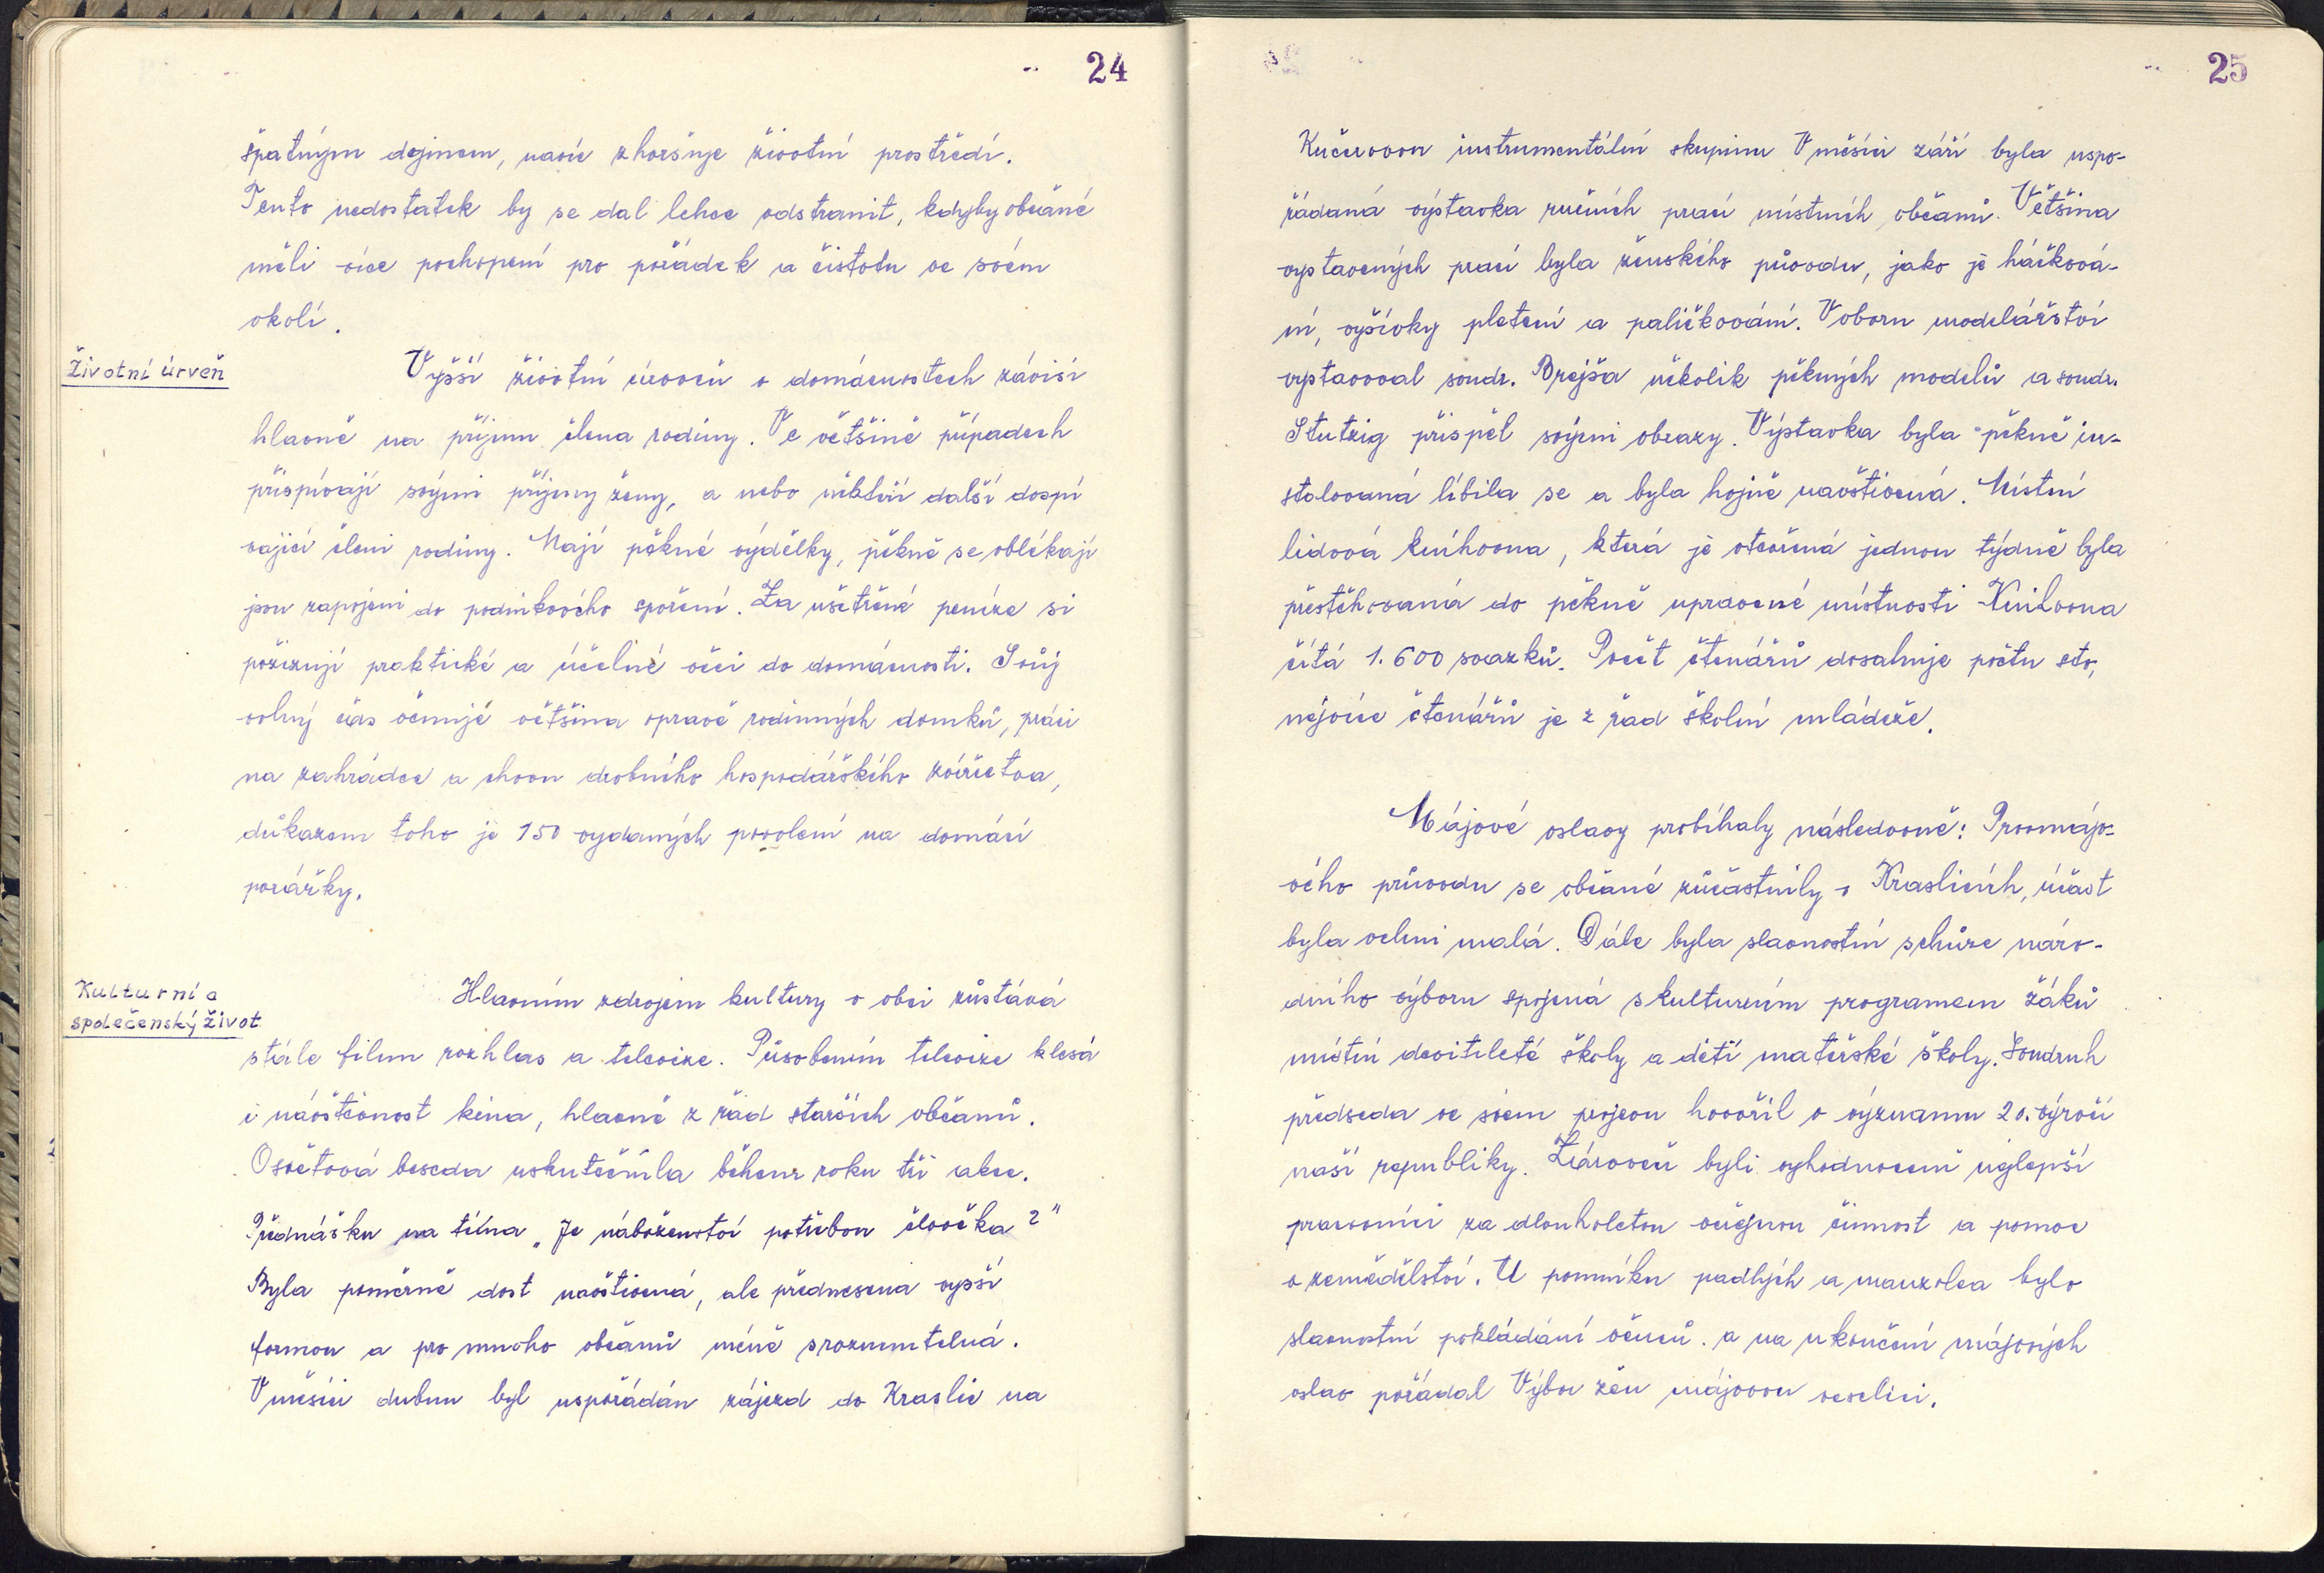 24
špatným dojmem, navíc zhoršuje životní prostředí.
Tento nedostatek by se dal lehce odstranit, kdyby občané
měli více pochopení pro pořádek a čistotu ve svém
okolí.
Životní úrveň
Vyšší životní úroveň v domácnostech závisí
hlavně na příjmu člena rodiny. Ve většině případech
přispívají svými příjmy ženy, a nebo někteří další dospí
vající členi rodiny. Mají pěkné výdělky, pěkně se oblékají
jsou zapojeni do podnikového spoření. Za ušetřené peníze si
pořizují praktické a účelné věci do domácnosti. Svůj
volný čas věnuje většina opravě rodinných domků, práci
na zahrádce a chovu drobního hospodářského zvířectva,
důkazem toho je 150 vydaných povolení na domácí
porážky.
Kulturní a
společenský život
Hlavním zdrojem kultury v obci zůstává
stále film rozhlas a televize. Působením televize klesá
i návštěvnost kina, hlavně z řad starších občanů.
Osvětová beseda uskutečnila během roku tři akce.
Přednášku na téma „Je náboženství potřebou člověka?"
Byla poměrně dost navštívená, ale přednesena vyšší
formou a pro mnoho občanů méně srozumitelná.
V měsíci dubnu byl uspořádán zájezd do Kraslic na
25
Kučerovou instrumentální skupinu V měsíci září byla uspo-
řádaná výstavka ručních prací místních občanů. Většina
vystavených prací byla ženského původu, jako je háčková-
ní, vyšívky pletení a paličkování. V oboru modelářství
vystavoval soudr. Brejša několik pěkných modelů a soudr.
Stutzig přispěl svými obrazy. Výstavka byla pěkně in-
stalovaná líbila se a byla hojně navštívená. Místní
lidová knihovna, která je otevřená jednou týdně byla
přestěhovaná do pěkně upravené místnosti Knihovna
čítá 1.600 svazků. Počet čtenářů dosahuje počtu sto,
nejvíce čtenářů je z řad školní mládeže.
Májové oslavy probíhaly následovně: Prvomájo-
vého průvodu se občané zúčastnily v Kraslicích, účast
byla velmi malá. Dále byla slavnostní schůze náro-
dního výboru spojená s kulturním programem žáků
místní devítileté školy a dětí mateřské školy. Soudruh
předseda ve svém projevu hovořil o významu 20. výročí
naší republiky. Zároveň byli vyhodnocení nejlepší
pracovníci za dlouholetou veřejnou činnost a pomoc
v zemědělství. U pomníku padlých a mauzolea bylo
slavnostní pokládání věnců. a na ukončení májových
oslav pořádal Výbor žen májovou veselici.